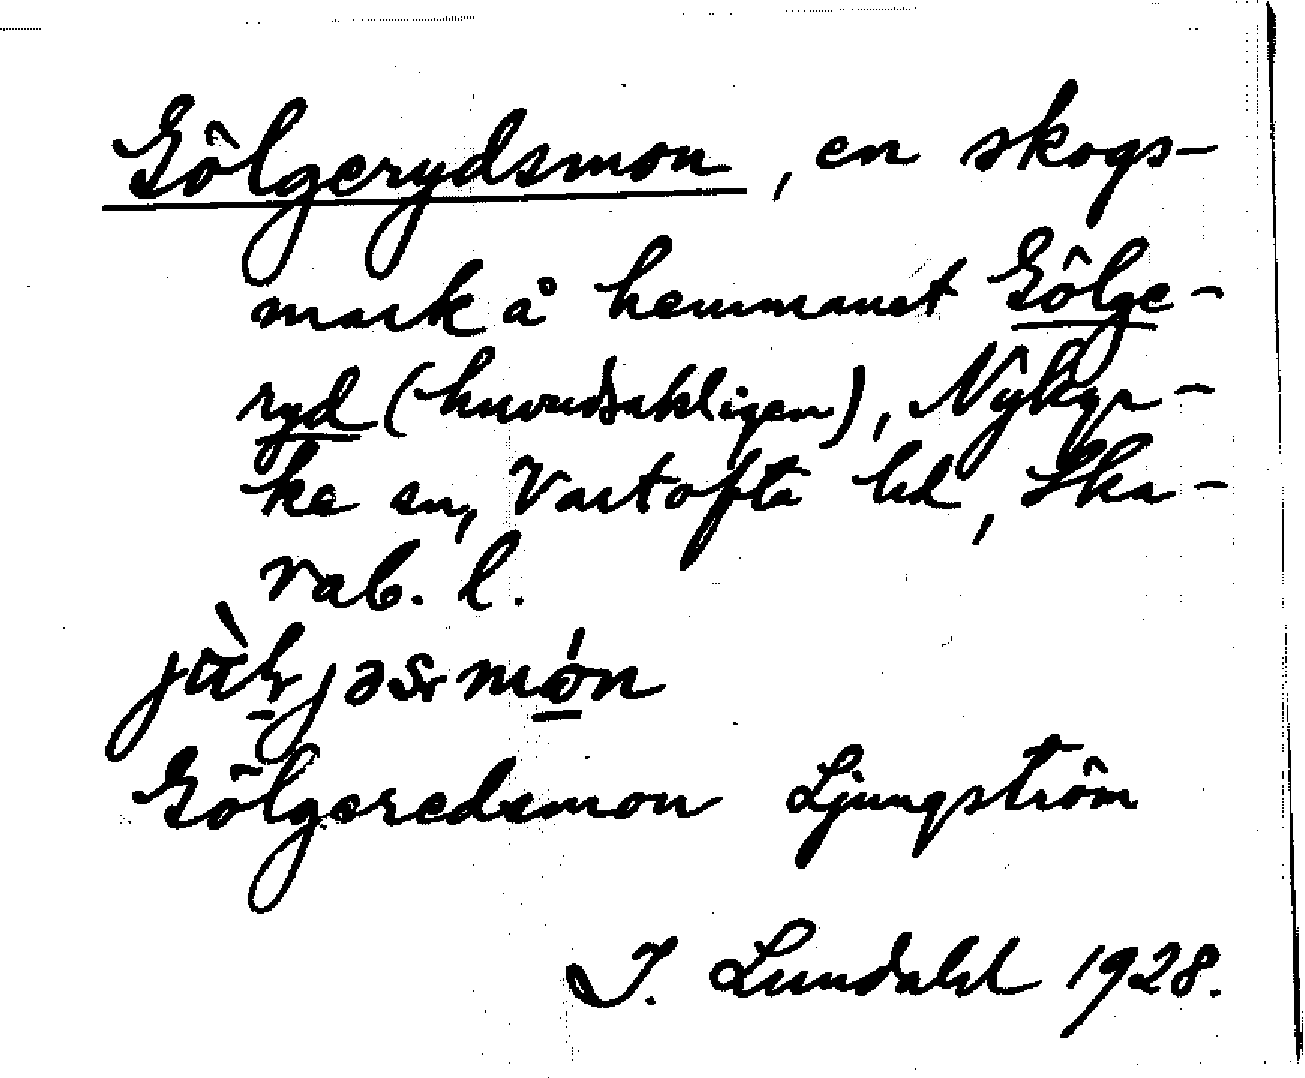 Gölgerydsmon, en skogs-
mark å hemmanet Gölge-
ryd (huvudsakligen), Nykyr-
ke sn, Vartofta hd, Ska-
rab. l.
Gölgeredsmon Ljungström
I. Lundahl 1928.